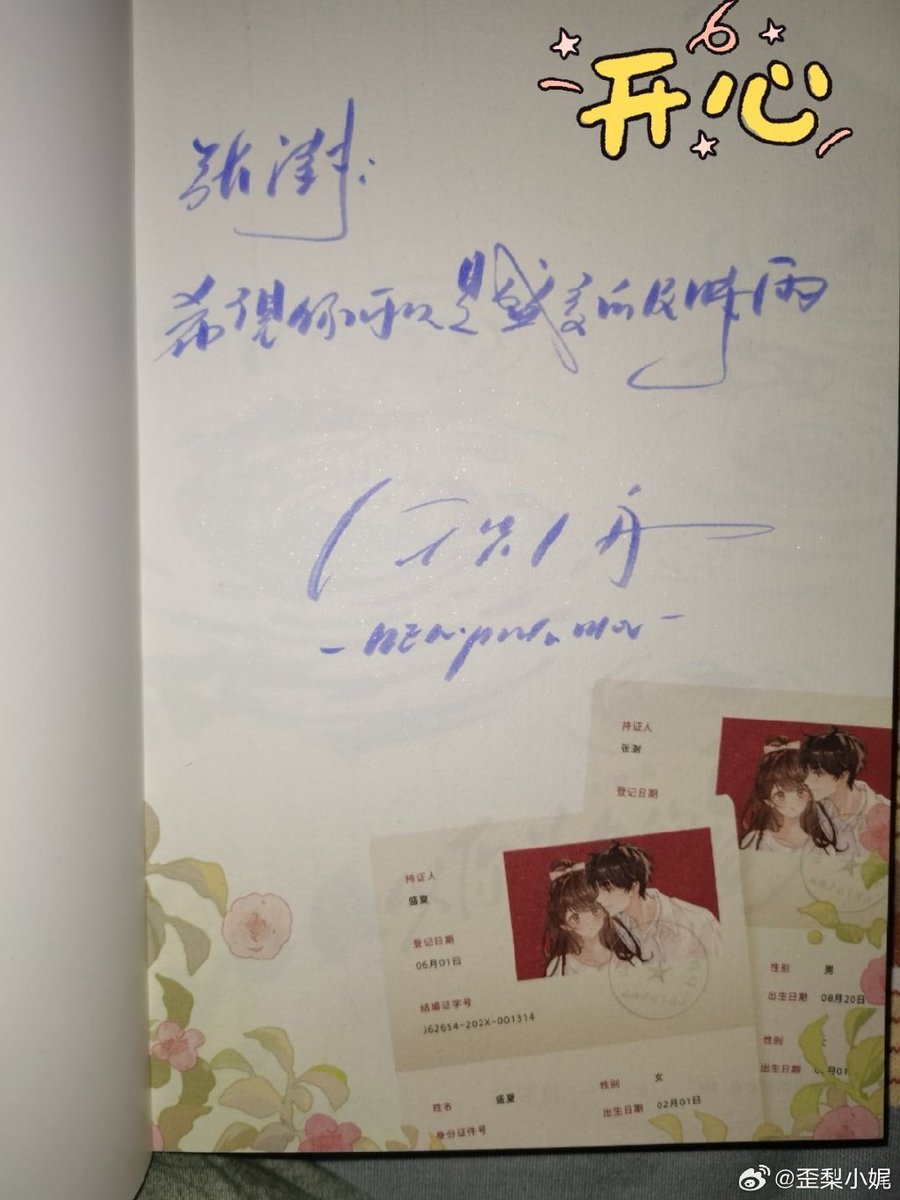 开心
张澍:
希望你可以是盛夏的及时雨
持证人
张澍
登记日期
持证人
盛夏
登记日期
06月01日
结婚证字号
J62654-202X-001314
性别 男
出生日期 08月20日
性别
出生日期
姓名 盛夏
性别 女
出生日期 02月01日
身份证件号
@歪梨小娓